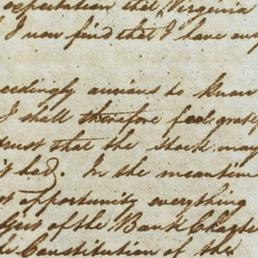 expectation that Virginia
I now find that I have
ceedingly anxious to know
I shall therefore feel
trust that the stock may
it had. In the meantime
opportunity everything
of the Bank
Constitution of the